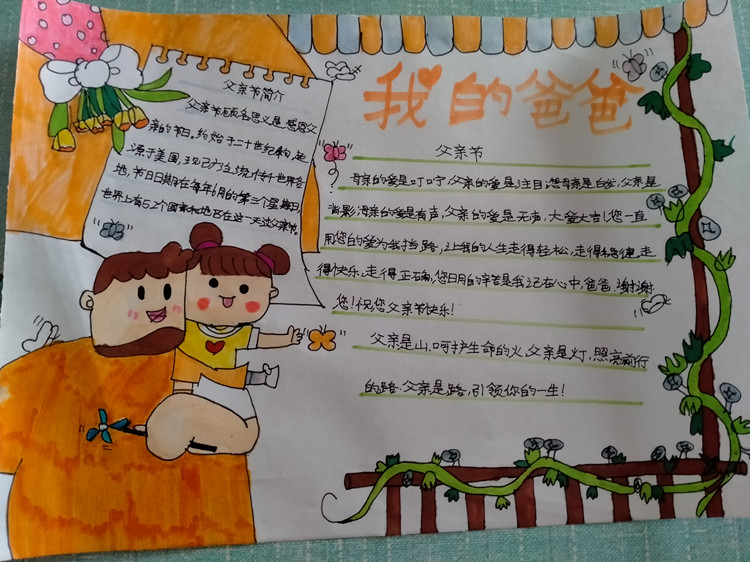 我的爸爸
父亲节简介
父亲节顾名思义是感恩父
亲的节日。约始于二十世纪初,起
源于美国,现已广泛流传于世界各
地,节日日期在每年6月的第三个星期日,
世界上有52个国家和地区在这一天过父亲节
父亲节
母亲的爱是叮咛,父亲的爱是注目;母亲是白发,父亲是
背影;母亲的爱是有声,父亲的爱是无声,大爱大言!您一直
用您的爱为我挡路,让我的人生走得轻松,走得稳健,走
得快乐,走得正确,您日月的辛苦是我记在心中,爸爸,谢谢
您!祝您父亲节快乐!
父亲是山,呵护生命的火,父亲是灯,照亮前行
的路.父亲是路,引领你的一生!